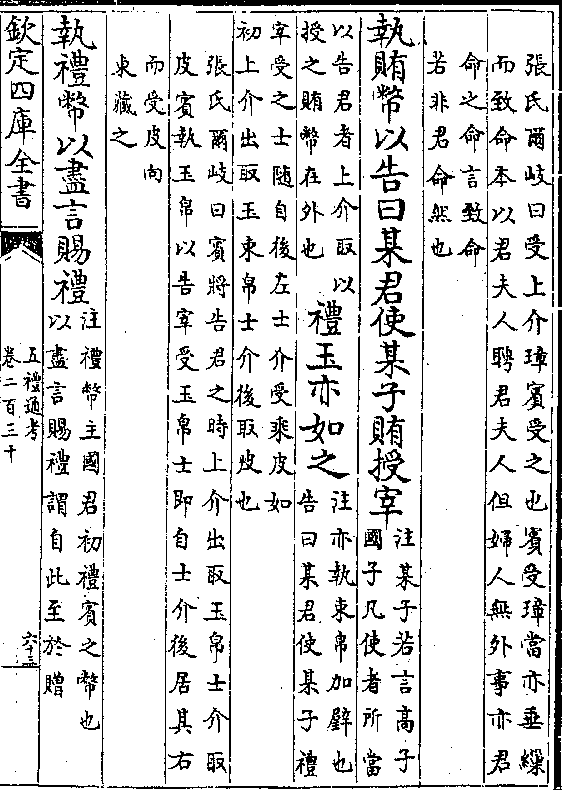 張氏爾岐曰受上介璋賓受之也賓受璋當亦垂繅
而致命本以君夫人聘君夫人但婦人無外事亦君
命之命言致命
若非君命然也
執賄幣以告曰某君使某子賄授宰
注某子若言高子
國子凡使者所當
以告君者上介取以
授之賄幣在外也
禮玉亦如之
注亦執束帛加璧也
告曰某君使某子禮
宰受之士隨自後左士介受乘皮如
初上介出取玉束帛士介後取皮也
張氏爾岐曰賓將告君之時上介出取玉帛士介取
皮賓執玉帛以告宰受玉帛士即自士介後居其右
而受皮向
東藏之
執禮幣以盡言賜禮
注禮幣主國君初禮賓之幣也
以盡言賜禮謂自此至於贈
欽定四庫全書
五禮通考
卷二百三十
六十三